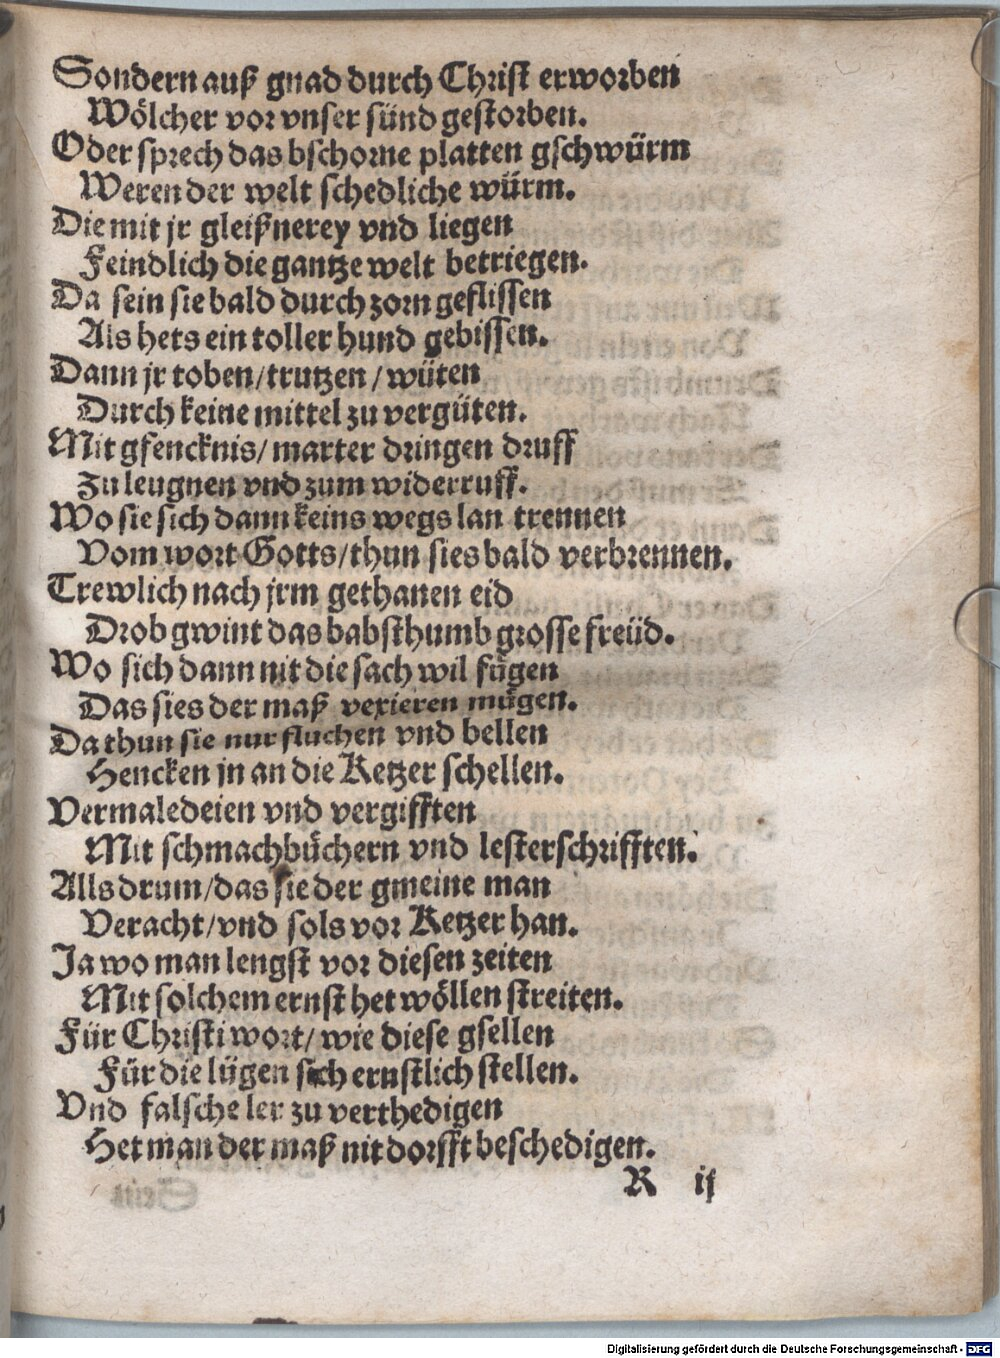 Sondern auß gnad durch Christ erworben
Wölcher vor vnser sünd gestorben.
Oder sprech das bschorne platten gschwürm
Weren der welt schedliche würm.
Die mit jr gleißnerey vnd liegen
Feindlich die gantze welt betriegen.
Da sein sie bald durch zorn geflissen
Als hets ein toller hund gebissen.
Dann jr toben/ trutzen/ wüten
Durch keine mittel zu vergüten.
Mit gfencknis/ marter dringen druff
Zu leugnen vnd zum widerruff.
Wo sie sich dann keins wegs lan trennen
Vom wort Gotts/ thun sies bald verbrennen.
Trewlich nach jrm gethanen eid
Drob gwint das babsthumb grosse freüd.
Wo sich dann nit die sach wil fügen
Das sies der maß vexieren mügen.
Da thun sie nur fluchen vnd bellen
Hencken jn an die Ketzer schellen.
Vermaledeien vnd vergifften
Mit schmachbüchern vnd lesterschrifften.
Alls drum/ das sie der gmeine man
Veracht/ vnd sols vor Ketzer han.
Ja wo man lengst vor diesen zeiten
Mit solchem ernst het wöllen streiten.
Für Christi wort/ wie diese gsellen
Für die lügen sich ernstlich stellen.
Vnd falsche ler zu verthedigen
Het man der maß nit dorfft beschedigen.
R ij
Digitalisierung gefördert durch die Deutsche Forschungsgemeinschaft - DFG